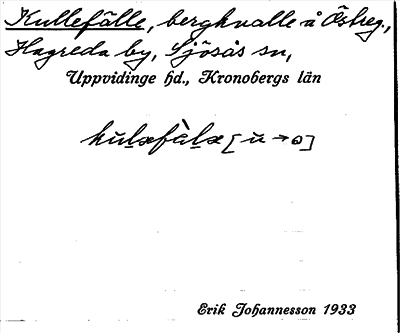 Kullefälle, bergknalle å Östreg.,
Hagreda by, Sjösås sn,
Uppvidinge hd., Kronobergs län
Erik Johannesson 1933